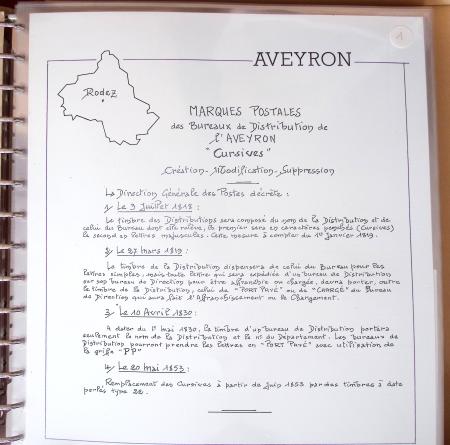 AVEYRON
1
Rodez
MARQUES POSTALES
des Bureaux de Distribution de
l'AVEYRON
"Cursives"
Création - Modification - Suppression
La Direction Générale des Postes décrète :
1/ Le 3 Juillet 1818 :
Le timbre des Distributions sera composé du nom de la Distribution et de
celui du Bureau dont elle relève, le premier sera en caractères penchés (Cursives)
le second en lettres majuscules. Cette mesure à compter du 1er Janvier 1819.
2/ Le 27 mars 1819 :
Le timbre de la Distribution dispensera de celui du Bureau pour les
lettres simples, mais toute lettre qui sera expédiée d'un bureau de Distribution
sur son bureau de Direction pour être affranchie ou chargée, devra porter, outre
le timbre de la Distribution, celui du "PORT PAYÉ" ou de "CHARGÉ" du Bureau
de Direction qui aura fait l'Affranchissement ou le Chargement.
3/ Le 10 Avril 1830 :
A dater du 1er mai 1830, le timbre d'un bureau de Distribution portera
seulement le nom de la Distribution et le n° du Département. Les bureaux de
Distribution pourront prendre les lettres en "PORT PAYÉ" avec utilisation de
la griffe "PP"
4/ Le 20 mai 1853 :
Remplacement des Cursives à partir de Juin 1853 par des timbres à date
perlés type 22.